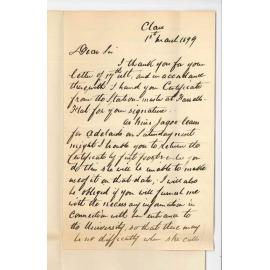 Clare
1st March 1899
Dear Sir
I thank you for your
letter of 17th ult, and in accordance
therewith I hand you Certificate
from the Station-master at Farrell's
Flat for your signature.
As Miss Jagoe leaves
for Adelaide on Saturday next
might I trouble you to return the
Certificate by first post as unless you
do this she will be unable to make
use of it on that date. I will also
be obliged if you will furnish me
with the necessary information in
connection with her entrance to
the University, so that there may
be no difficulty when she calls